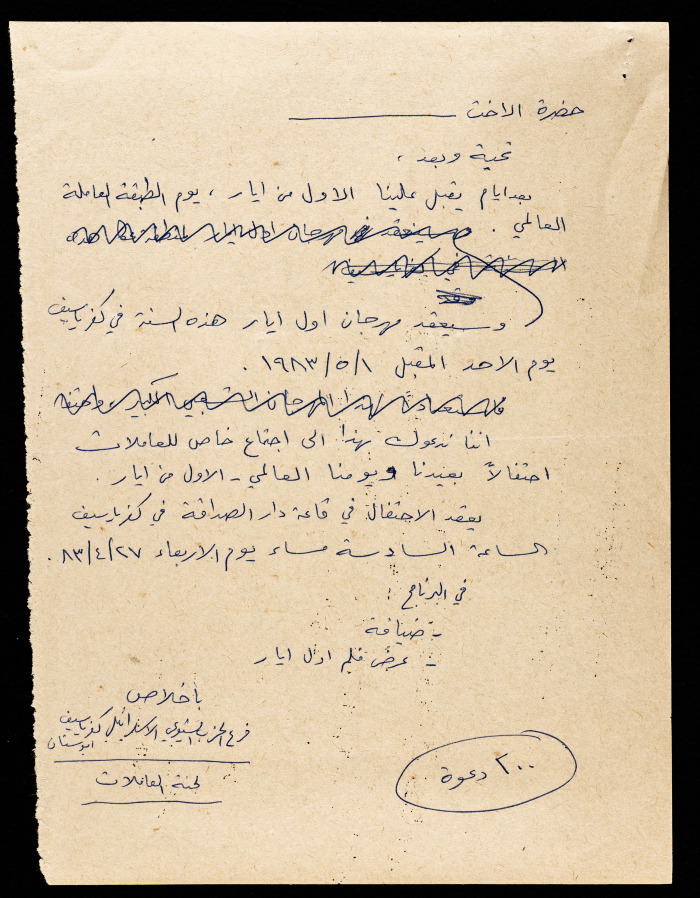 حضرة الاخت ــــــــــــــ
تحية وبعد ،
بعد ايام يقبل علينا الاول من ايار ، يوم الطبقة العاملة
العالمي .
وسيعقد مهرجان اول ايار هذه السنة في كفرياسيف
يوم الاحد المقبل ١٩٨٣/٥/١ .
اننا ندعوك بهذا الى اجتماع خاص للعاملات
احتفالاً بعيدنا ويومنا العالمي - الاول من ايار .
يعقد الاحتفال في قاعة دار الصداقة في كفرياسيف
الساعة السادسة مساء يوم الاربعاء ٨٣/٤/٢٧ .
في البرنامج :
- ضيافة
- عرض فلم اول ايار
باخلاص
فرع الحزب الشيوعي الاسرائيلي كفرياسيف
ابوسنان
لجنة العاملات
٢٠٠ دعوة